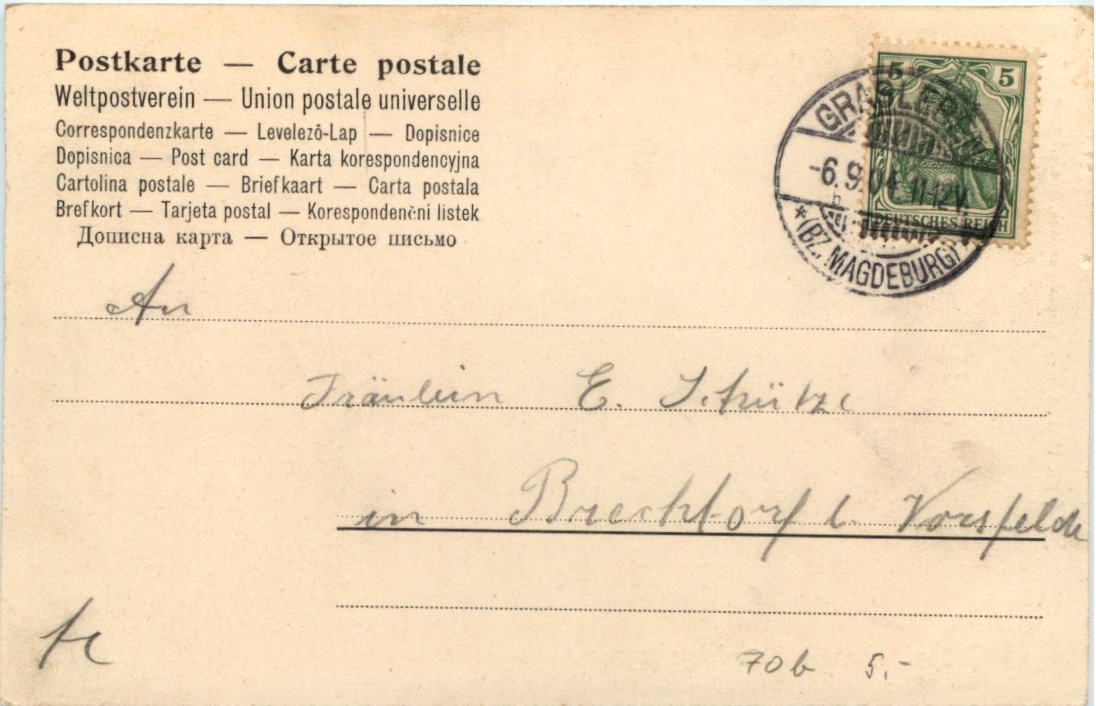 Postkarte — Carte postale
Weltpostverein — Union postale universelle
Correspondenzkarte — Levelezō-Lap — Dopisnice
Dopisnica — Post card — Karta korespondencyjna
Cartolina postale — Briefkaart — Carta postala
Brefkort — Tarjeta postal — Korespondenčni listek
Дописна карта — Открытое письмо
5 5
DEUTSCHES REICH
GRASLEBEN
-6.9.04. 11-12V.
*(BZ. MAGDEBURG)
An
Fräulein E. Schütze
in Brechtorf b. Vorsfelde
70b 5.-